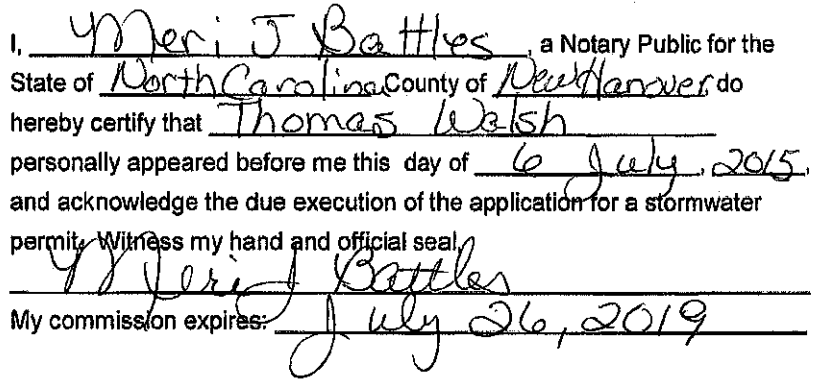 I, Meri J Battles, a Notary Public for the
State of North Carolina County of New Hanover do
hereby certify that Thomas Walsh
personally appeared before me this day of 6 July, 2015,
and acknowledge the due execution of the application for a stormwater
permit. Witness my hand and official seal,
Meri J Battles
My commission expires: July 26, 2019